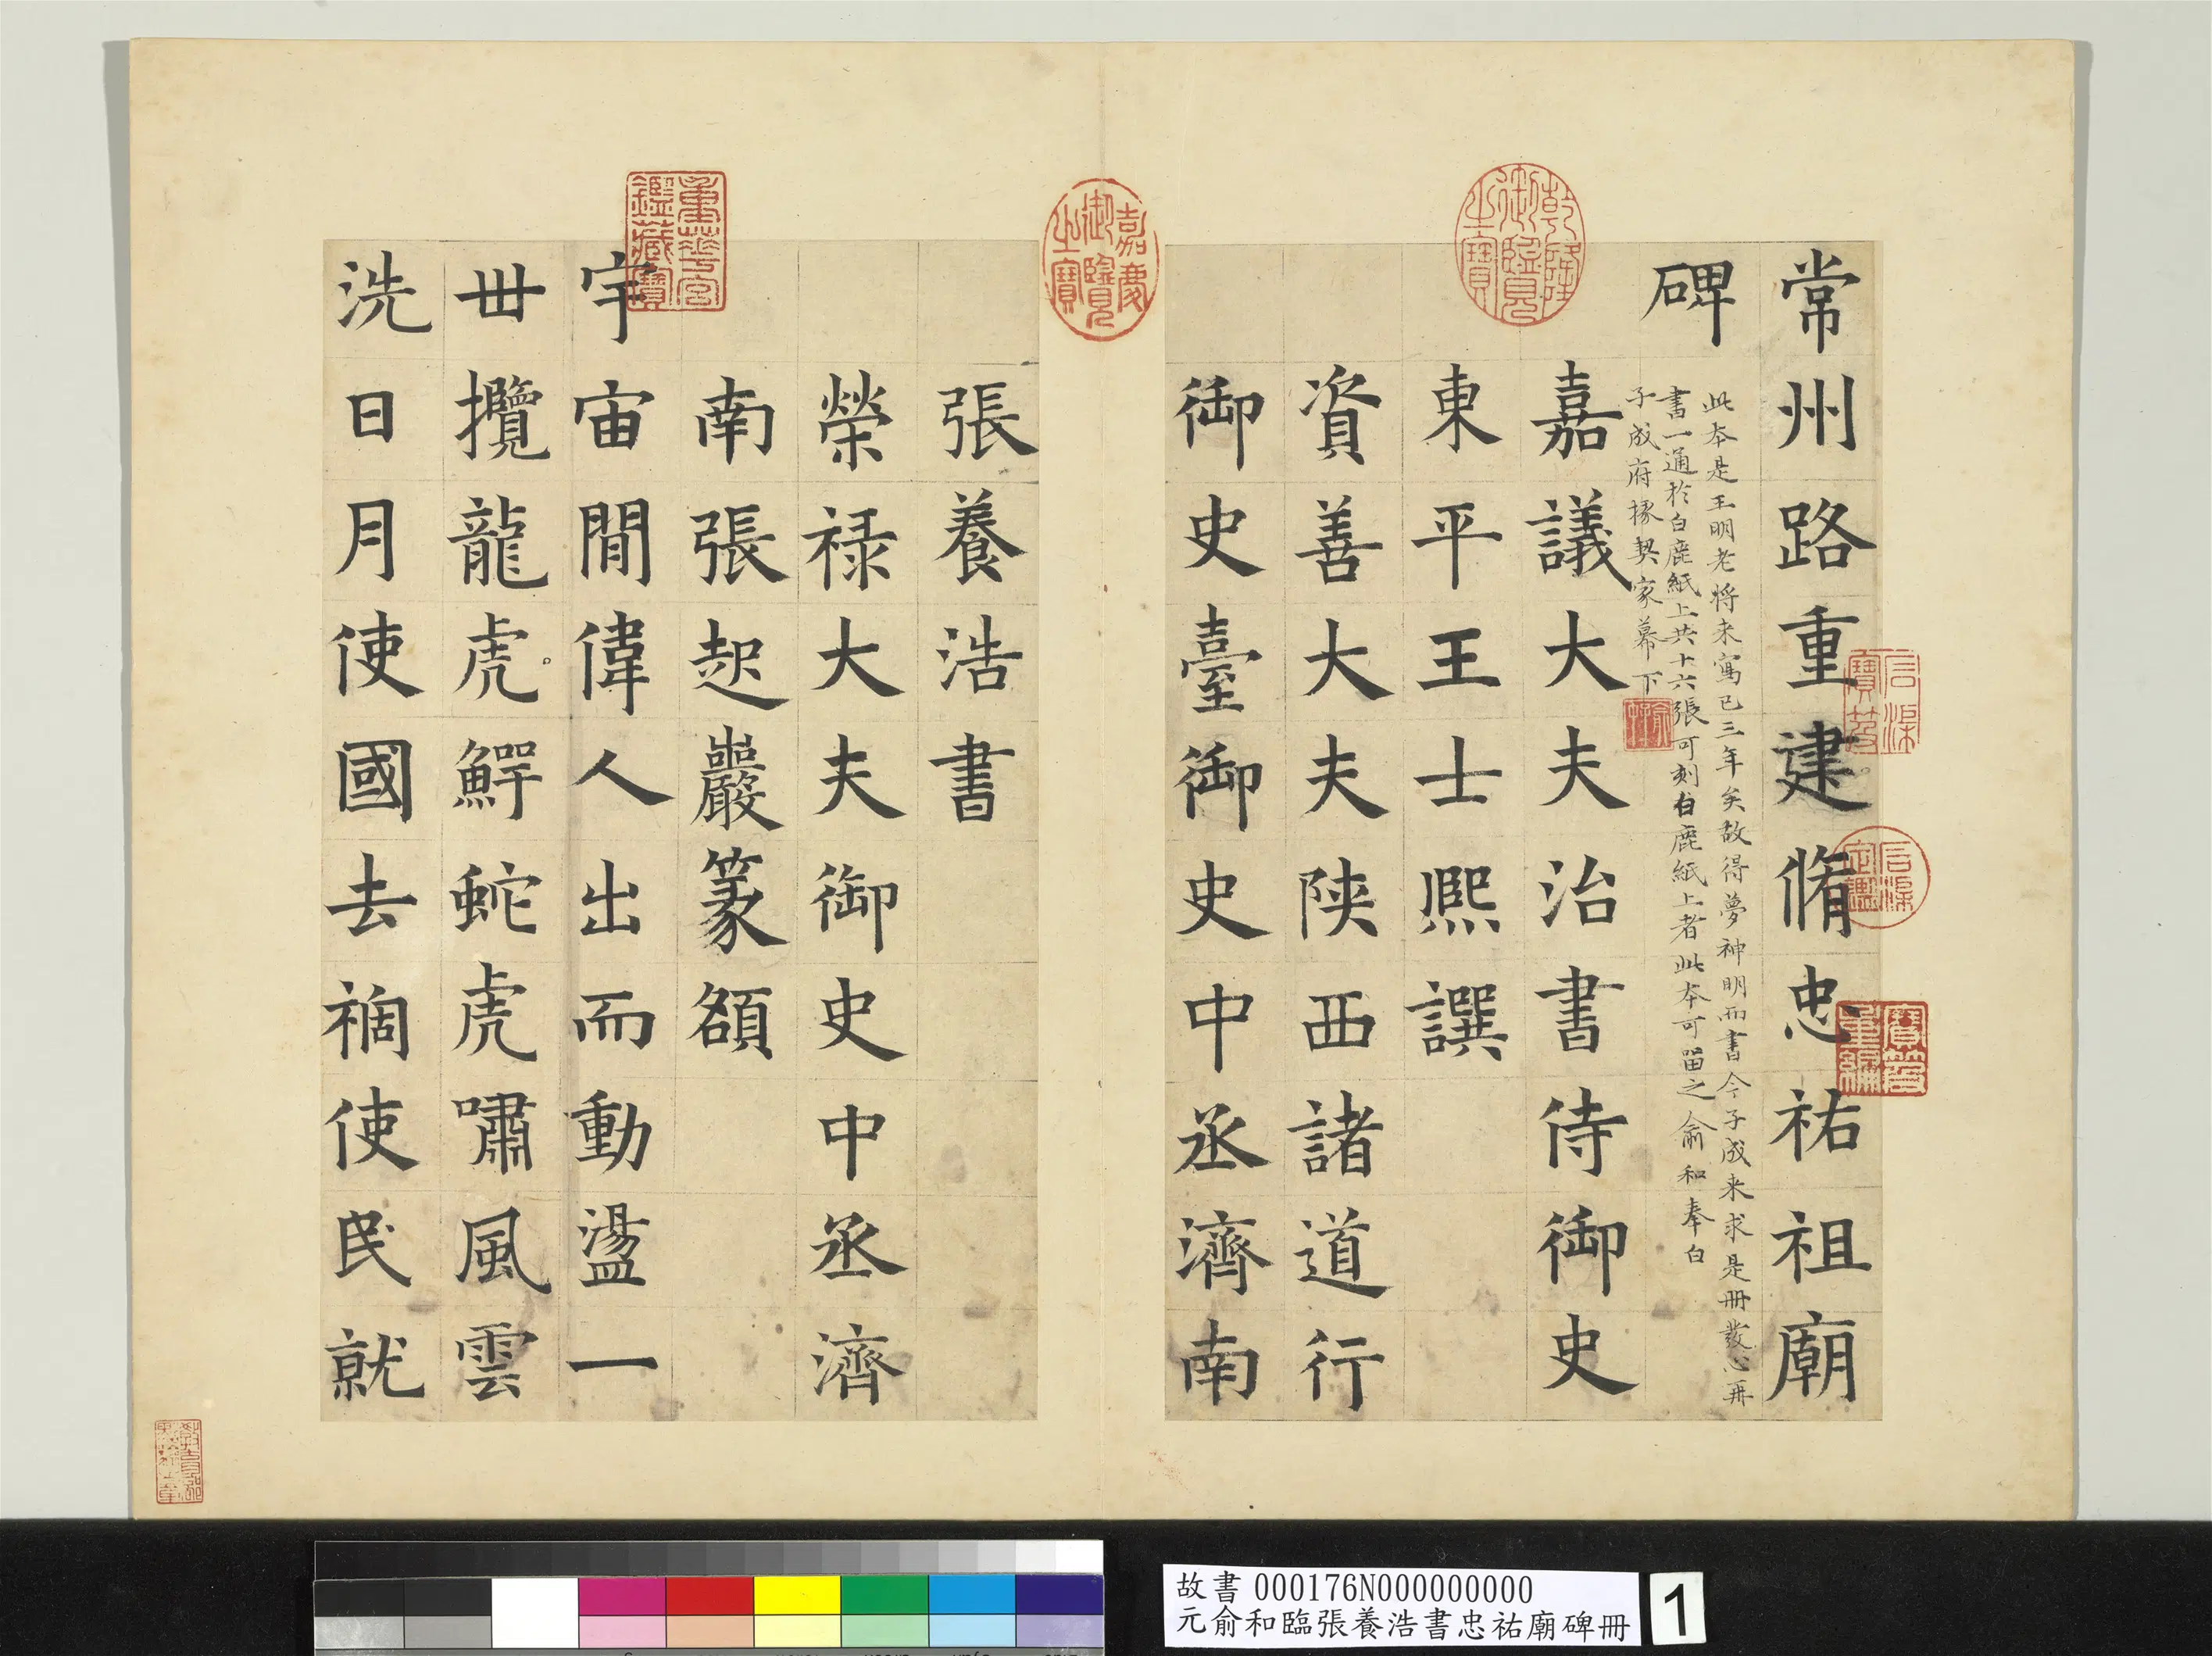 常州路重建脩忠祐祖廟
碑
此本是王明老將來寫已三年矣故得夢神明而書今子成来求是冊發心再
書一通於白鹿紙上共十六張可刻白鹿紙上者此本可留之俞和奉白
子成府掾契家幕下
嘉議大夫治書侍御史
東平王士熈譔
資善大夫陝西諸道行
御史臺御史中丞濟南
張養浩書
榮禄大夫御史中丞濟
南張起巖篆額
宇宙間偉人出而動盪一
丗攬龍虎鰐蛇虎嘯風雲
洗日月使國去禍使民就
乾隆御覽之寶
嘉慶御覽之寶
重華宮鑑藏寶
石渠寶笈
石渠定鑑
寶笈重編
故書 000176N000000000
元俞和臨張養浩書忠祐廟碑冊
1